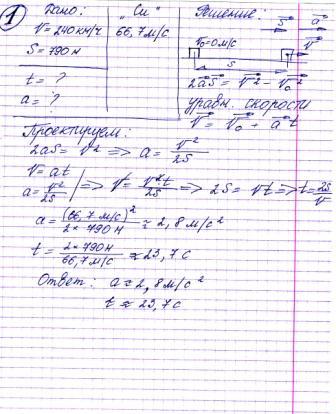 1
Дано: "Си" Решение:
V = 240 км/ч 66,7 м/с
S = 790 м
V₀=0 м/с S a V
S
t = ?
a = ?
2aS = V² - V₀²
уравн. скорости
V = V₀ + a t
Проектируем:
2aS = V² => a = V²/2S
V = at
a = V²/2S => V = V²t/2S => 2S = Vt => t = 2S/V
a = (66,7 м/с)²/2 × 790 м ≈ 2,8 м/с²
t = 2 × 790 м/66,7 м/с ≈ 23,7 с
Ответ: a ≈ 2,8 м/с²
t ≈ 23,7 с